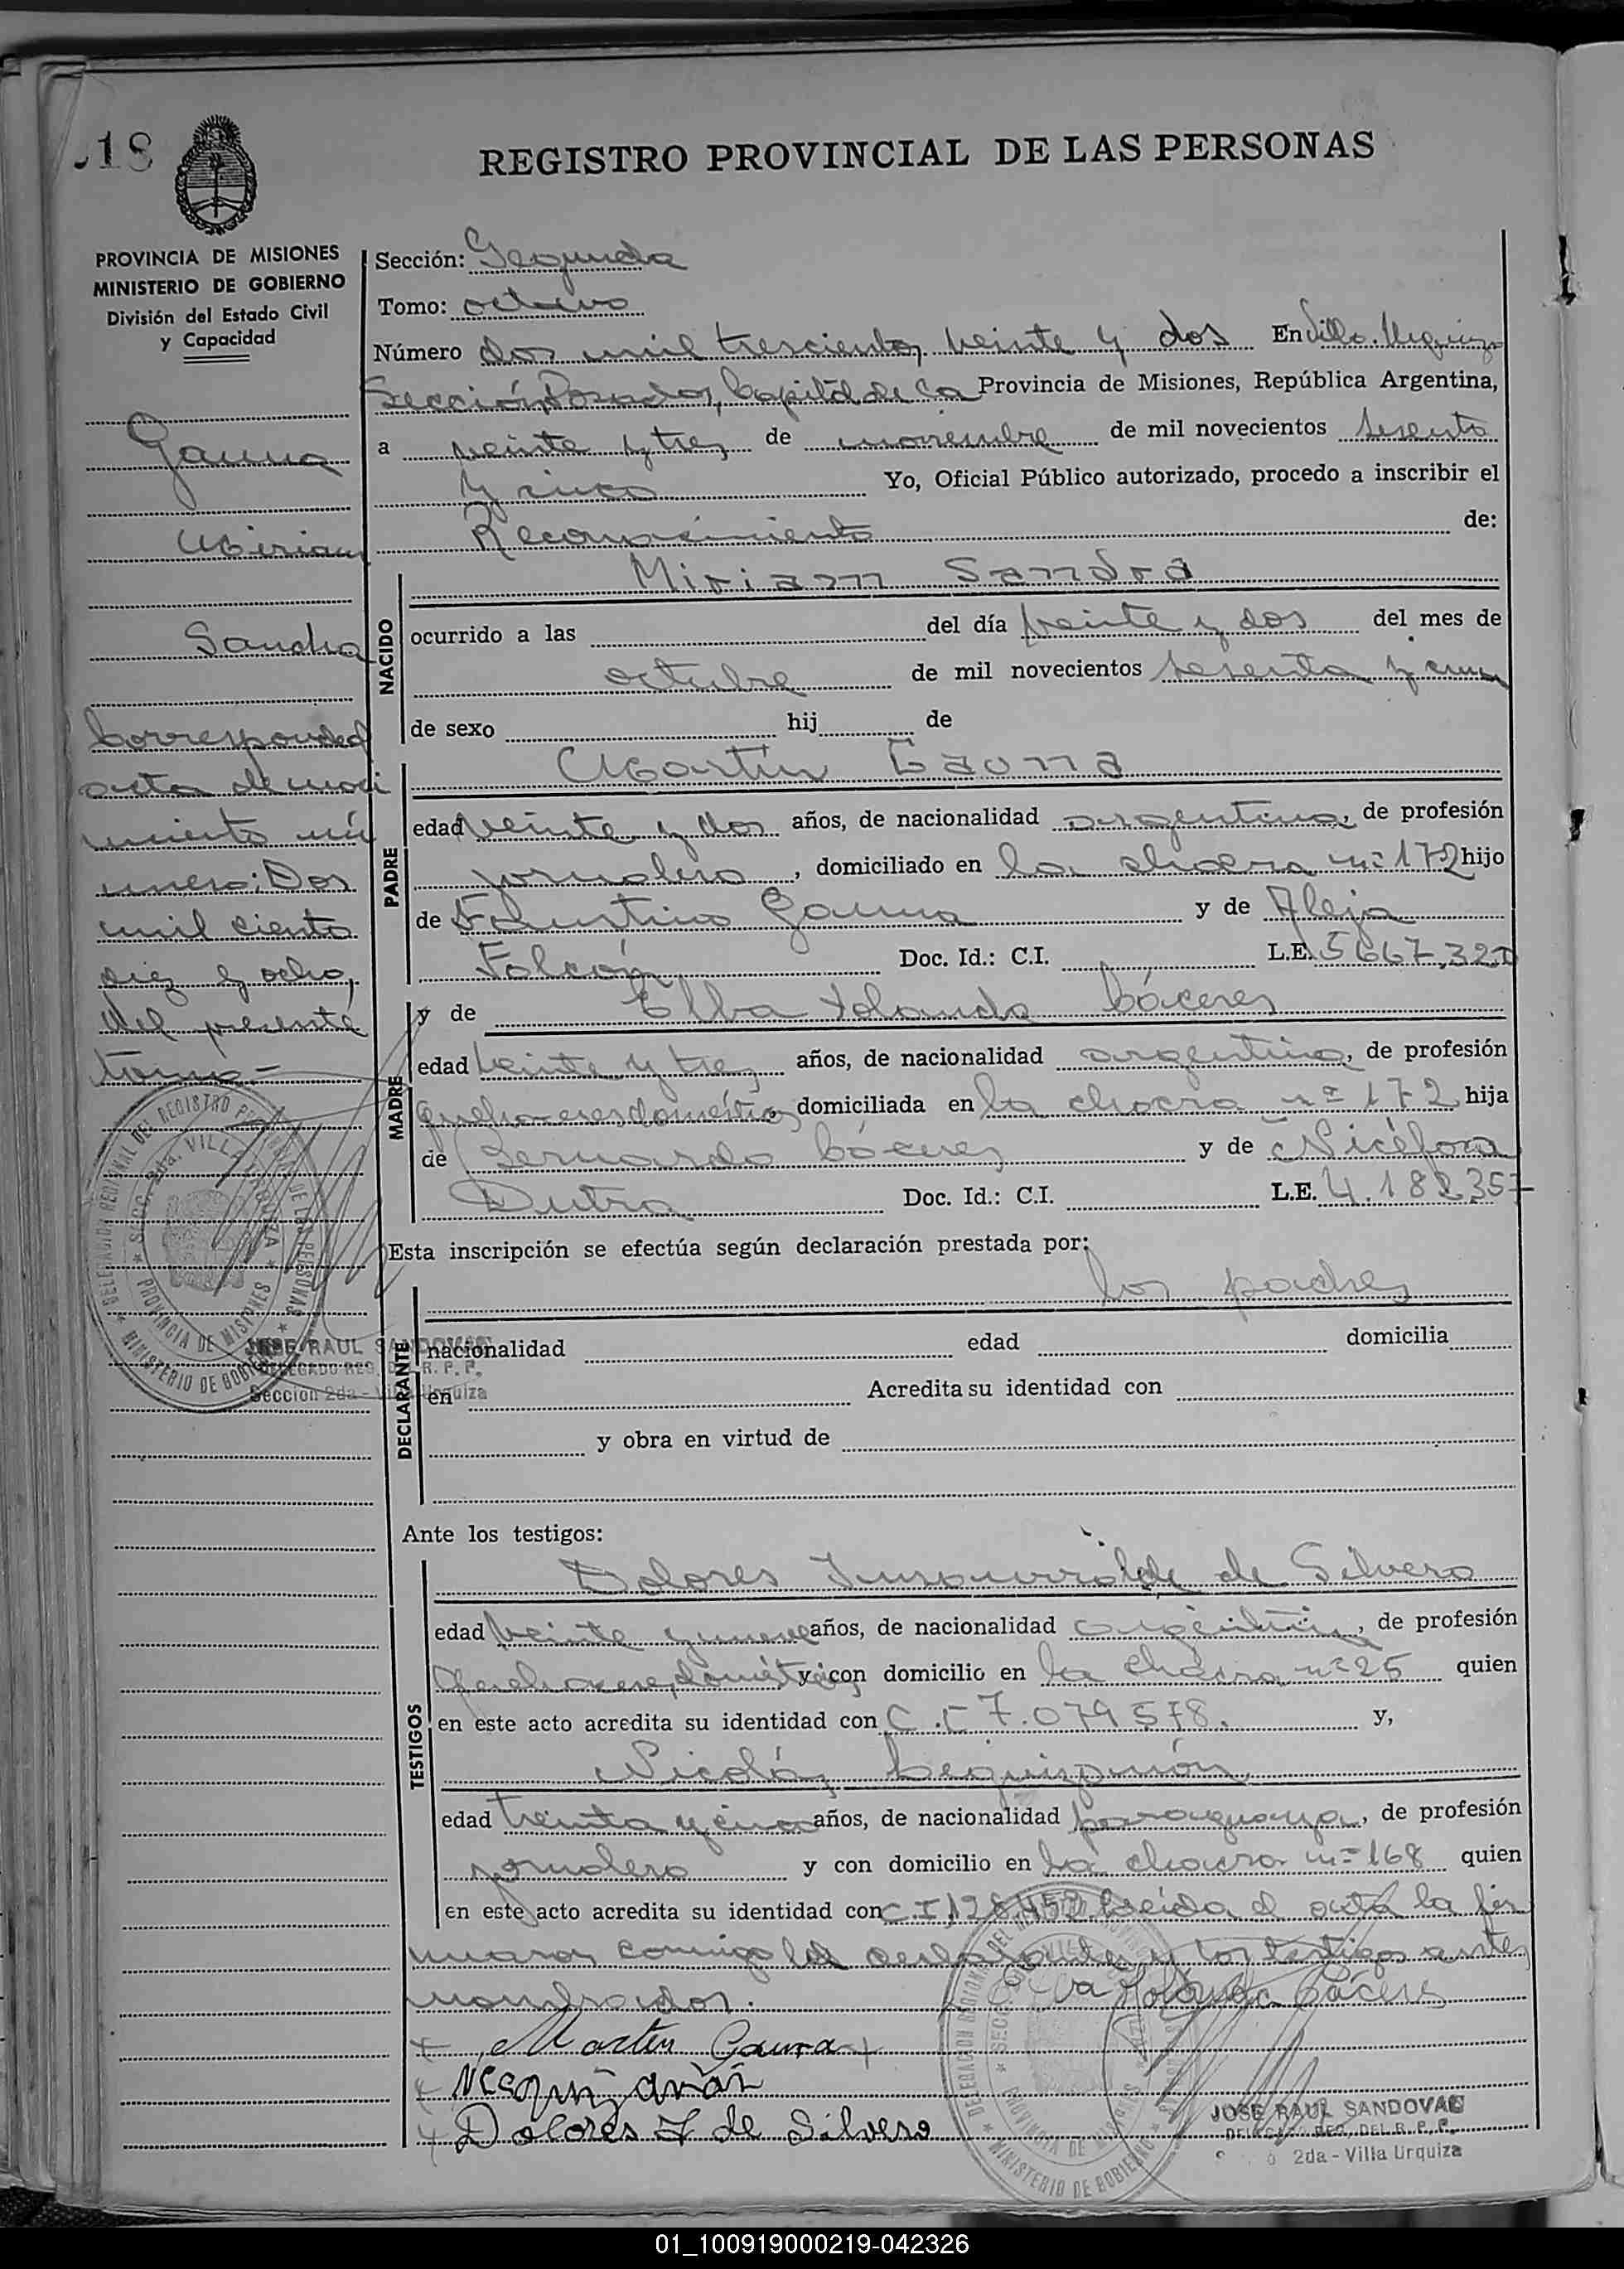 18
REGISTRO PROVINCIAL DE LAS PERSONAS
PROVINCIA DE MISIONES
MINISTERIO DE GOBIERNO
División del Estado Civil
y Capacidad
Gauna
Miriam
Sandra
Corresponde al
acta de naci
miento nú
mero: Dos
mil ciento
diez y ocho,
del presente
tomo-
Sección: Segunda
Tomo: octavo
Número dos mil trescientos veinte y dos En Villa Urquiza
Sección Posadas, Capital de la Provincia de Misiones, República Argentina,
a veinte y tres de noviembre de mil novecientos sesenta
y cinco Yo, Oficial Público autorizado, procedo a inscribir el
Reconocimiento de:
NACIDO
Miriam Sandra
ocurrido a las del día veinte y dos del mes de
octubre de mil novecientos sesenta y cinco
de sexo hij de
PADRE
Martín Gauna
edad veinte y dos años, de nacionalidad argentina, de profesión
jornalero, domiciliado en la chacra nº 172 hijo
de Faustino Gauna y de Aleja
Falcón Doc. Id.: C.I. L.E. 5667.320
MADRE
y de Elba Yolanda Cáceres
edad veinte y tres años, de nacionalidad argentina, de profesión
quehaceres domésticos domiciliada en la chacra nº 172 hija
de Bernardo Cáceres y de Nicéfora
Dutra Doc. Id.: C.I. L.E. 4.182.357
Esta inscripción se efectúa según declaración prestada por:
los padres
DECLARANTE
nacionalidad edad domicilia
en Acredita su identidad con
y obra en virtud de
Ante los testigos:
TESTIGOS
Dolores Insaurralde de Silvero
edad veinte y nueve años, de nacionalidad argentina, de profesión
quehaceres domésticos y con domicilio en la chacra nº 25 quien
en este acto acredita su identidad con C.I 7.079578. y,
Nicolás
edad treinta y cinco años, de nacionalidad paraguaya, de profesión
jornalero y con domicilio en la chacra nº 168 quien
en este acto acredita su identidad con C I 126.452 Leída el acta la fir
maron conmigo los y los testigos antes
nombrados.
Yolanda Cáceres
Martín Gauna
Dolores I de Silvero
DELEGACION REGIONAL DEL REGISTRO PROVINCIAL DE LAS PERSONAS
SECC. 2da. VILLA URQUIZA
PROVINCIA DE MISIONES
MINISTERIO DE GOBIERNO
JOSE RAUL SANDOVAL
DELEGADO REG. DEL R. P. P.
Sección 2da - Villa Urquiza
JOSE RAUL SANDOVAL
DELEGADO REG. DEL R. P. P.
2da - Villa Urquiza
01_100919000219-042326